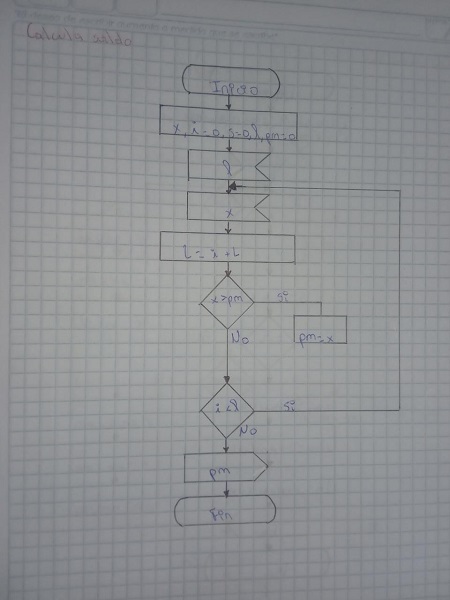 Calcula saldo
Inicio
x, i=0, s=0, l, pm=0
l
x
i = i + 1
x>pm
Si
pm=x
No
i<l
Si
No
pm
Fin